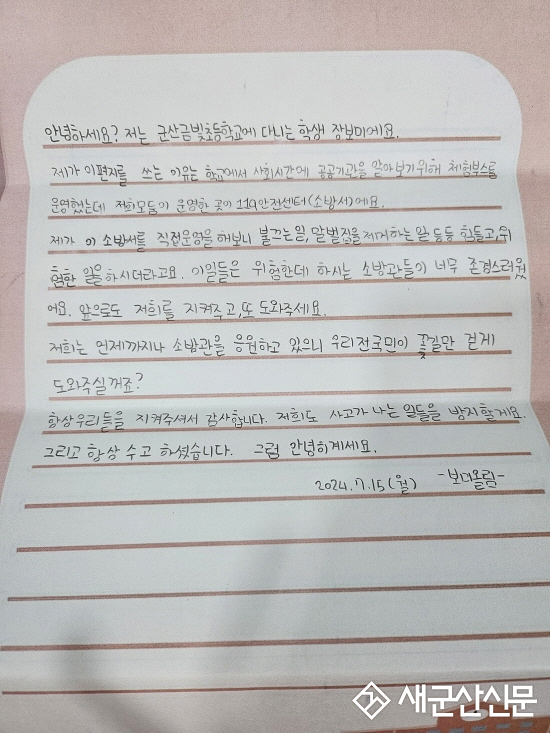 안녕하세요? 저는 군산금빛초등학교에 다니는 학생 장보미에요.
제가 이편지를 쓰는 이유는 학교에서 사회시간에 공공기관을 알아보기위해 체험부스를
운영했는데 저희모둠이 운영한 곳이 119안전센터(소방서)에요.
제가 이 소방서를 직접운영을 해보니 불끄는일, 말벌집을제거하는일 등등 힘들고,위
험한 일을 하시더라고요. 이일들은 위험한데 하시는 소방관들이 너무 존경스러웠
어요. 앞으로도 저희를 지켜주고,또 도와주세요.
저희는 언제까지나 소방관을 응원하고 있으니 우리전국민이 꽃길만 걷게
도와주실꺼죠?
항상우리들을 지켜주셔서 감사합니다. 저희도 사고가 나는 일들을 방지할게요.
그리고 항상 수고 하셨습니다. 그럼 안녕히계세요.
2024.7.15(월) -보미올림-
새군산신문